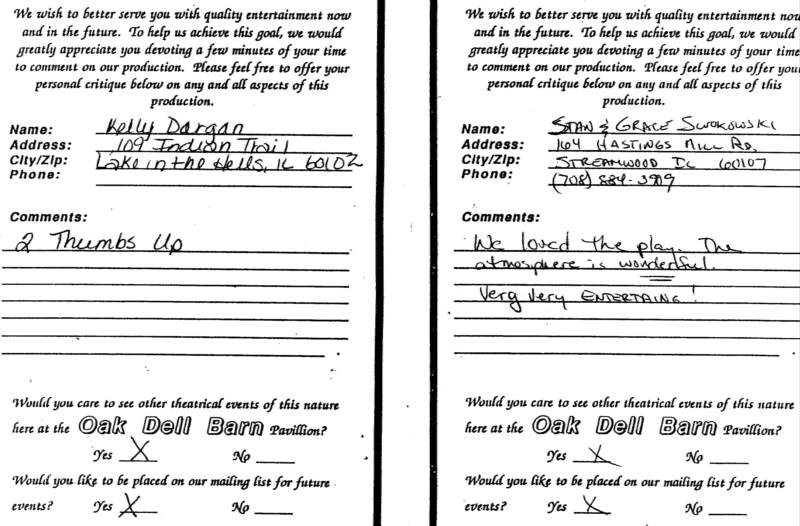 We wish to better serve you with quality entertainment now
and in the future. To help us achieve this goal, we would
greatly appreciate you devoting a few minutes of your time
to comment on our production. Please feel free to offer your
personal critique below on any and all aspects of this
production.
Name: Kelly Dargan
Address: 109 Indian Trail
City/Zip: Lake in the Hills, IL 60102
Phone:
Comments:
2 Thumbs Up
Would you care to see other theatrical events of this nature
here at the Oak Dell Barn Pavillion?
Yes X No
Would you like to be placed on our mailing list for future
events? Yes X No
We wish to better serve you with quality entertainment now
and in the future. To help us achieve this goal, we would
greatly appreciate you devoting a few minutes of your time
to comment on our production. Please feel free to offer your
personal critique below on any and all aspects of this
production.
Name: STAN & GRACE SWOKOWSKI
Address: 164 HASTINGS MILL RD.
City/Zip: STREAMWOOD IL 60107
Phone: (708) 884-3919
Comments:
We loved the play. The
atmosphere is wonderful.
Very very ENTERTAING!
Would you care to see other theatrical events of this nature
here at the Oak Dell Barn Pavillion?
Yes X No
Would you like to be placed on our mailing list for future
events? Yes X No